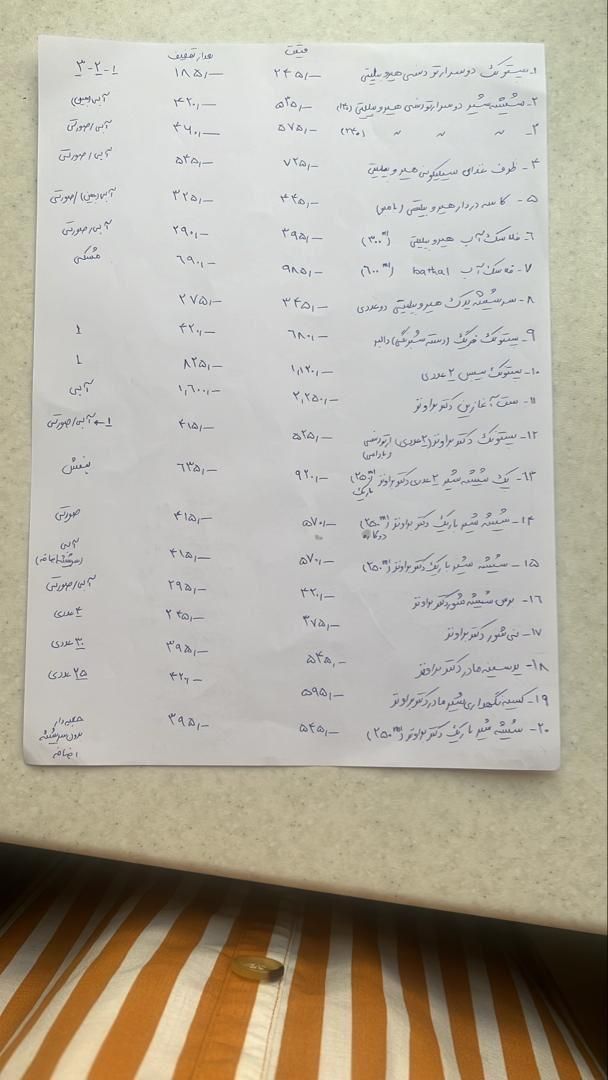 قیمت بعد از تخفیف
۱- پستونک دو سر ارتودنسی هیرو بیبیتی ۲۴۵,— ۱۸۵,— ۱-۲-۳
۲- شیشه شیر دو سر ارتودنسی هیرو بیبیتی ۵۳۵,— ۴۲۰,— آبی
۳- " " " (۲۴۰) ۵۷۵,— ۴۶۰,— آبی/صورتی
۴- ظرف غذای سیلیکونی هیرو بیبیتی ۷۲۵,— ۵۴۵,— آبی/صورتی
۵- کاسه دردار هیرو بیبیتی ۴۴۵,— ۳۲۵,— آبی/صورتی
۶- فلاسک آب هیرو بیبیتی (۳۰۰ml) ۳۹۵,— ۲۹۰,— آبی/صورتی
۷- فلاسک آب (۶۰۰ml) ۹۸۵,— ۶۹۰,— مشکی
۸- سرشیشه یدک هیرو بیبیتی دو عددی ۳۴۵,— ۲۷۵,—
۹- پستونک فریک ۶۸۰,— ۴۲۰,— 1
۱۰- پستونک سیس ۲ عددی ۱,۱۲۰,— ۸۲۵,— 1
۱۱- ست آغازین دکتر براونز ۲,۲۵۰,— ۱,۶۰۰,— آبی
۱۲- پستونک دکتر براونز (۲ عددی) ارتودنسی ۵۲۵,— ۴۱۵,— ۱← آبی/صورتی
۱۳- پک شیشه شیر ۲ عددی دکتر براونز (۲۵۰ml) ۹۲۰,— ۶۳۵,— بنفش
باریک
۱۴- شیشه شیر باریک دکتر براونز (۲۵۰ml) ۵۷۰,— ۴۱۵,— صورتی
دوکاره
۱۵- شیشه شیر باریک دکتر براونز (۲۵۰ml) ۵۷۰,— ۴۱۵,— آبی
(سرشیشه اضافه)
۱۶- برس شیشه شور دکتر براونز ۴۲۰,— ۲۹۵,— آبی/صورتی
۱۷- نی شور دکتر براونز ۳۷۵,— ۲۴۵,— ۴ عددی
۱۸- پد سینه مادر دکتر براونز ۵۴۵,— ۳۹۵,— ۳۰ عددی
۱۹- کیسه نگهداری شیر مادر دکتر براونز ۵۹۵,— ۴۲۰,— ۲۵ عددی
۲۰- شیشه شیر باریک دکتر براونز (۲۵۰ml) ۵۴۵,— ۳۹۵,— جعبه دار
بدون سرشیشه
اضافه